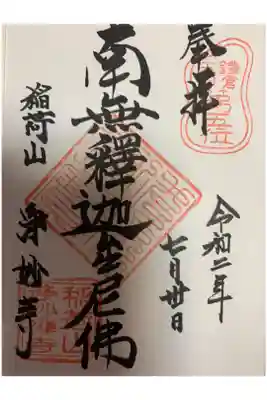 奉拝
令和二年
七月卅日
南無釋迦牟尼佛
稲荷山
浄妙寺